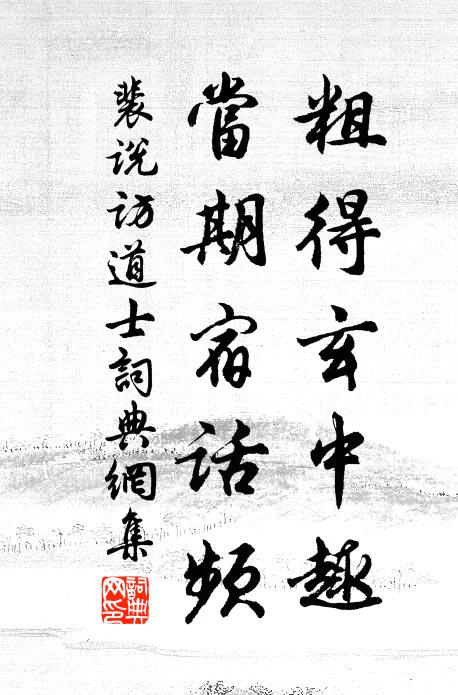 粗得玄中趣
當期宿話頻
裴说访道士詞典網集
詞典网印